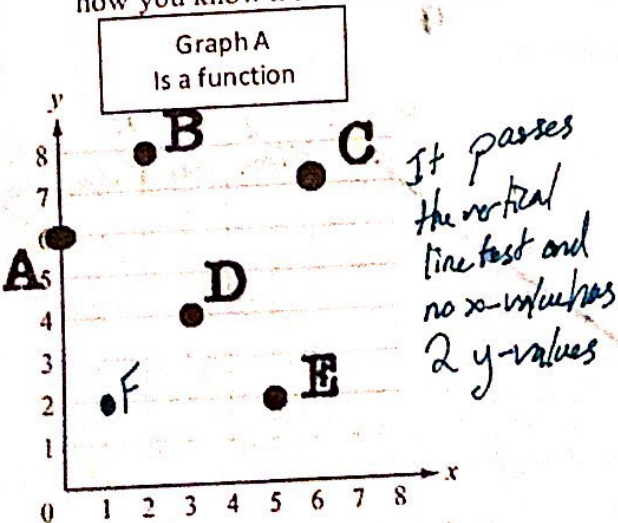 how you know
Graph A
Is a function
y
B
C
8
7
A
5
D
4
3
F
E
2
1
x
0 1 2 3 4 5 6 7 8
It passes
the vertical
line test and
no x-value has
2 y-values